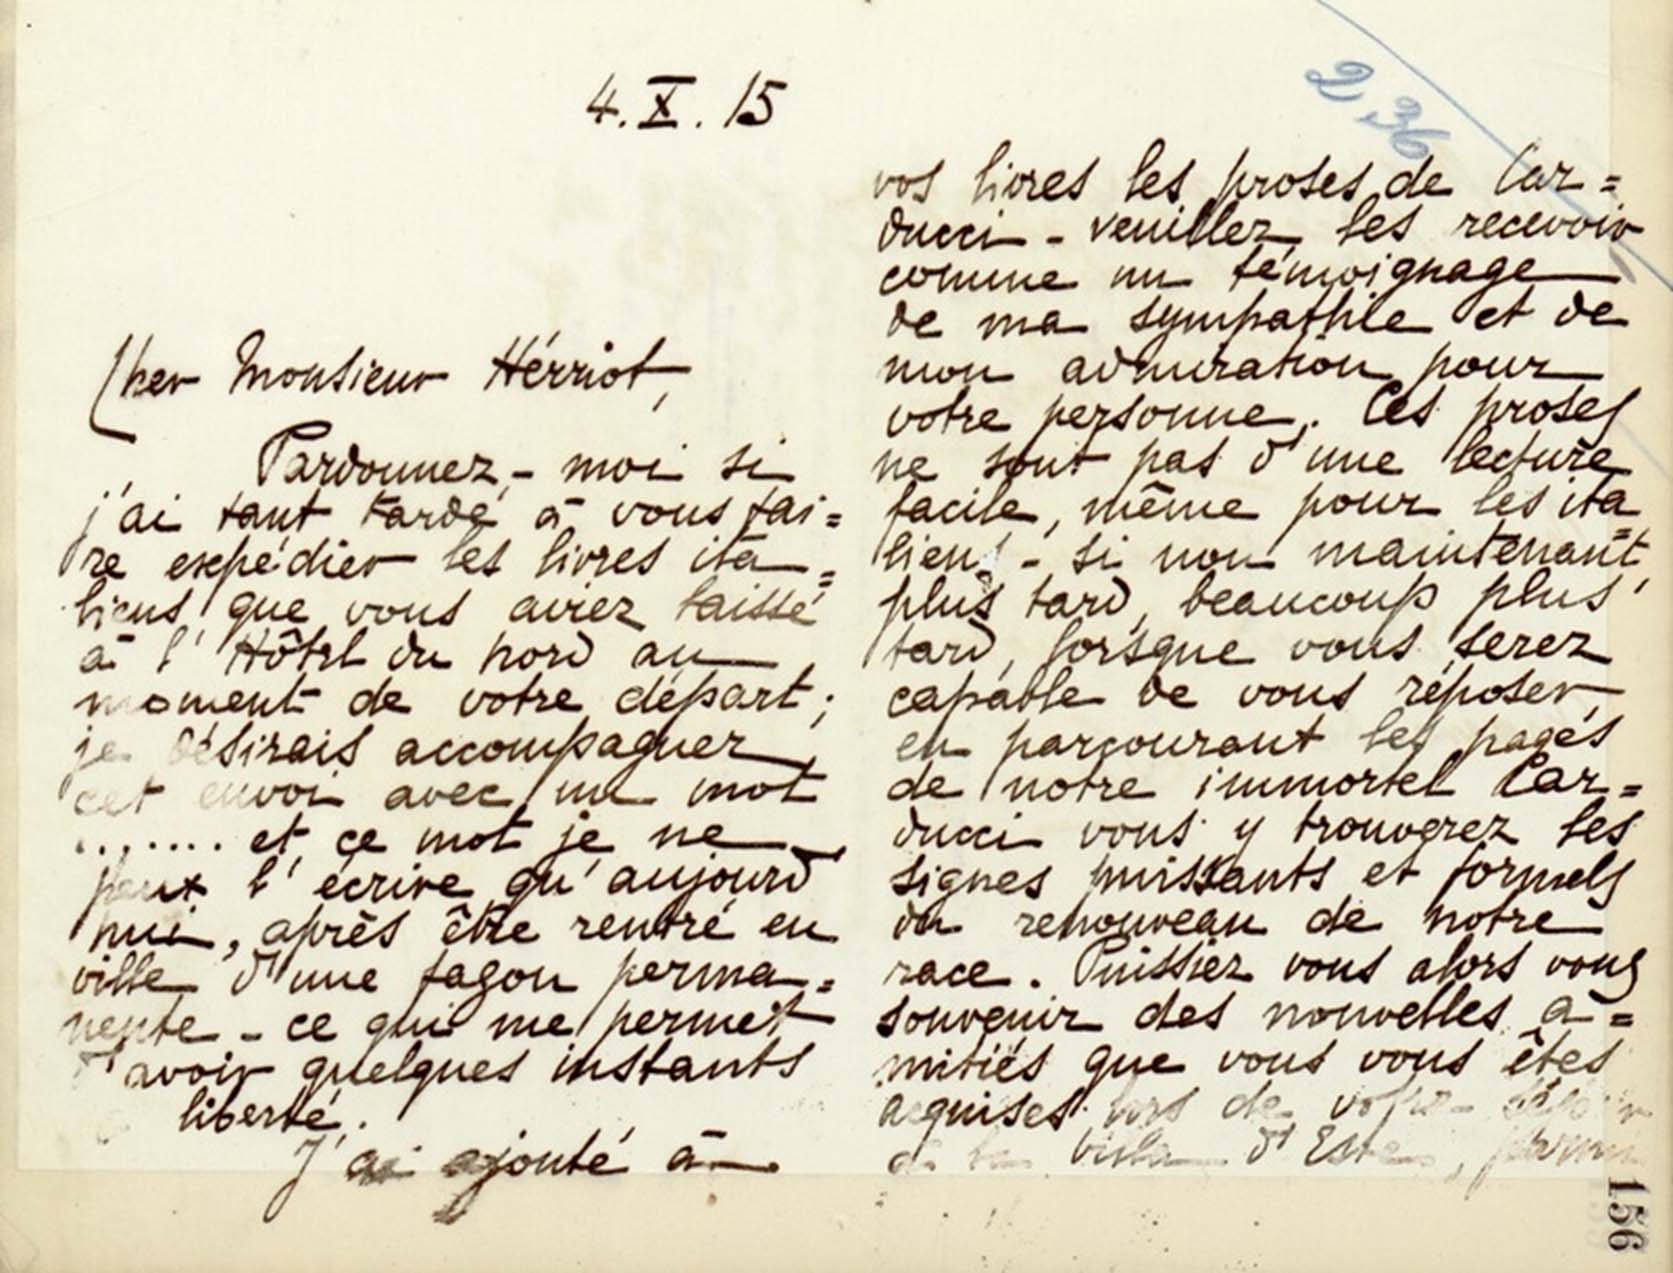 4. X. 15
Cher Monsieur Hérriot,
Pardonnez-moi si
j'ai tant tardé à vous fai=
re expédier les livres ita=
liens que vous aviez laissé
à l'Hôtel du Nord au
moment de votre départ;
je désirais accompagner
cet envoi avec un mot
....... et ce mot je ne
peux l'écrire qu'aujourd
hui, après être rentré en
ville d'une façon perma=
nente - ce qui me permet
d'avoir quelques instants
liberté.
J'ai ajouté à
2,36
vos livres les proses de Car=
ducci - veuillez les recevoir
comme un témoignage
de ma sympathie et de
mon admiration pour
votre personne. Ces proses
ne sont pas d'une lecture
facile, même pour les ita=
liens - si non maintenant,
plus tard, beaucoup plus
tard, lorsque vous serez
capable de vous réposer,
en parcourant les pages
de notre immortel Car=
ducci vous y trouverez les
signes puissants et formels
du renouveau de notre
race. Puissiez vous alors vous
souvenir des nouvelles a=
mitiés que vous vous êtes
acquises lors de votre séjour
à la Villa d'Este, parmi
156